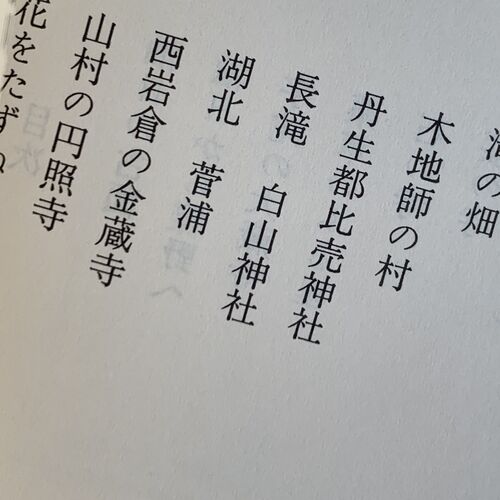 滝の畑
木地師の村
丹生都比売神社
長滝　白山神社
湖北　菅浦
西岩倉の金蔵寺
山村の円照寺
花をたずね